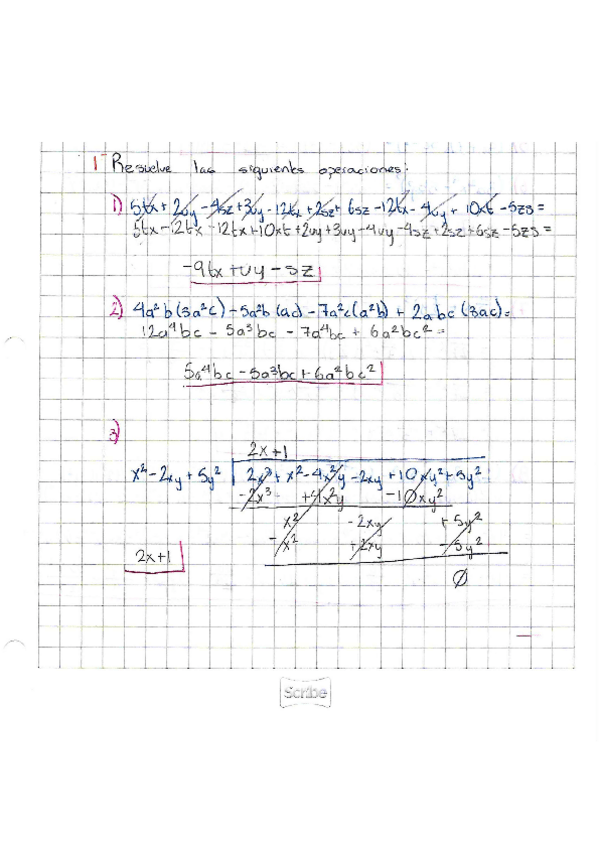 1- Resuelve las siguientes operaciones:
1) 5tx + 2uy - 4sz + 3uy - 12tx + 2sz + 6sz - 12tx - 4uy + 10xt - 5zs =
5tx - 12tx - 12tx + 10xt + 2uy + 3uy - 4uy - 4sz + 2sz + 6sz - 5zs =
-9tx + uy - sz
2) 4a²b (3a²c) - 5a²b (ac) - 7a²c (a²b) + 2abc (3ac) =
12a⁴bc - 5a³bc - 7a⁴bc + 6a²bc² =
5a⁴bc - 5a³bc + 6a²bc²
3)
2x + 1
x² - 2xy + 5y² 2x³ + x² - 4x²y - 2xy + 10xy² + 5y²
- 2x³ + 4x²y - 10xy²
x² - 2xy + 5y²
- x² + 2xy - 5y²
2x+1
Ø
Scribe